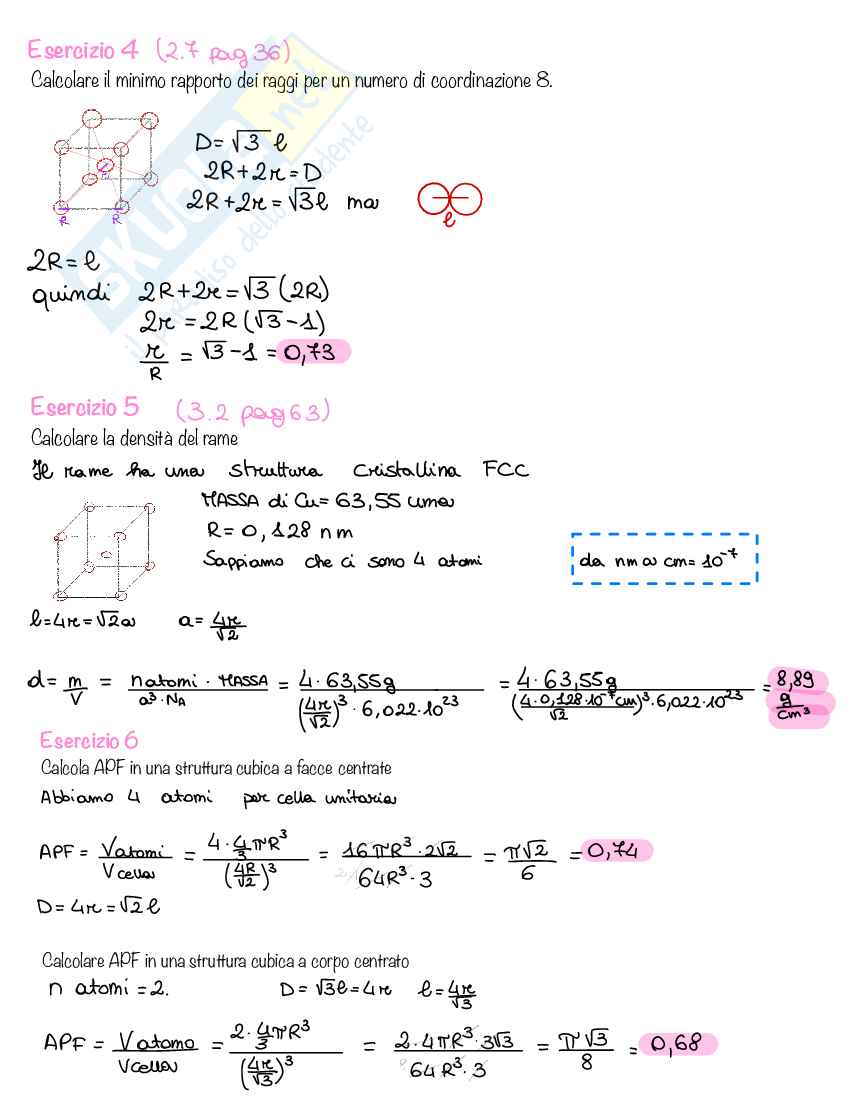 Esercizio 4 (2.7 pag 36)
Calcolare il minimo rapporto dei raggi per un numero di coordinazione 8.
D = √3 l
2R + 2r = D
2R + 2r = √3 l ma
l
R R
2R = l
quindi 2R + 2r = √3 (2R)
2r = 2R (√3 - 1)
r/R = √3 - 1 = 0,73
Esercizio 5 (3.2 pag 63)
Calcolare la densità del rame
Il rame ha una struttura cristallina FCC
MASSA di Cu = 63,55 uma
R = 0,128 nm
Sappiamo che ci sono 4 atomi
da nm a cm = 10⁻⁷
l = 4r = √2 a a = 4r/√2
d = m/V = n atomi · MASSA / a³ · NA = 4 · 63,55 g / (4r/√2)³ · 6,022 · 10²³ = 4 · 63,55 g / (4 · 0,128 · 10⁻⁷ cm/√2)³ · 6,022 · 10²³ = 8,89 g/cm³
Esercizio 6
Calcola APF in una struttura cubica a facce centrate
Abbiamo 4 atomi per cella unitaria
APF = V atomi / V cella = 4 · 4/3 πR³ / (4R/√2)³ = 16 πR³ · 2√2 / 64R³ · 3 = π√2 / 6 = 0,74
D = 4r = √2 l
Calcolare APF in una struttura cubica a corpo centrato
n atomi = 2. D = √3 l = 4r l = 4r/√3
APF = V atomo / V cella = 2 · 4/3 πR³ / (4r/√3)³ = 2 · 4πR³ · 3√3 / 64 R³ · 3 = π√3 / 8 = 0,68
SKUOLA.net
il paradiso dello studente